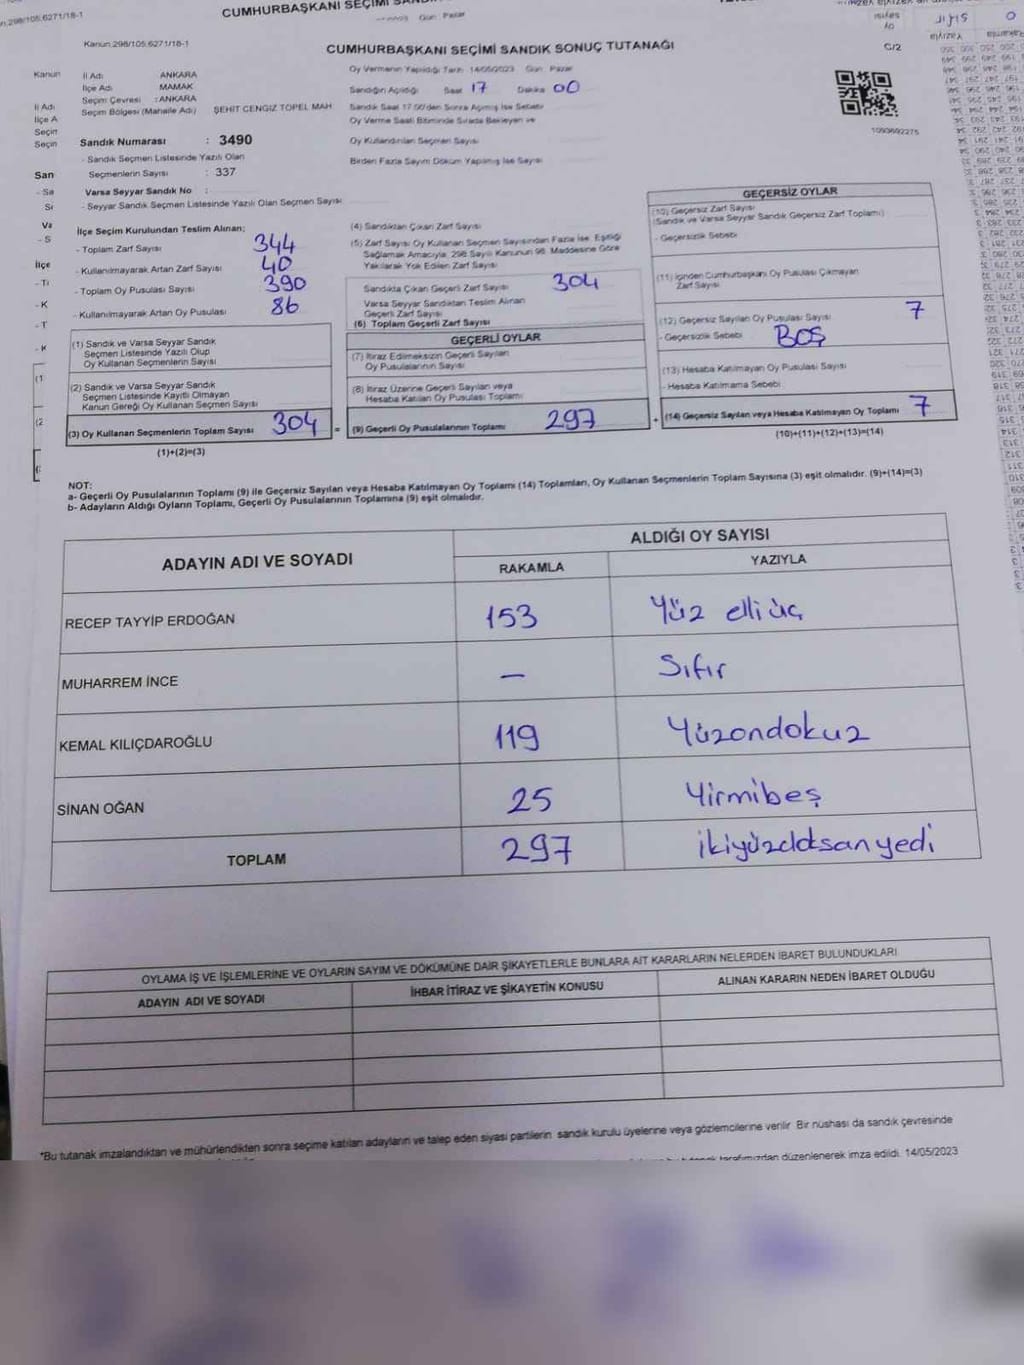 CUMHURBAŞKANI SEÇİMİ
Gün Pazar
Kanun.298/105.6271/18-1
CUMHURBAŞKANI SEÇİMİ SANDIK SONUÇ TUTANAĞI
C/2
İl Adı ANKARA
İlçe Adı MAMAK
Seçim Çevresi : ANKARA
Seçim Bölgesi (Mahalle Adı) ŞEHİT CENGİZ TOPEL MAH
Sandık Numarası : 3490
- Sandık Seçmen Listesinde Yazılı Olan
Seçmenlerin Sayısı : 337
Varsa Seyyar Sandık No :
- Seyyar Sandık Seçmen Listesinde Yazılı Olan Seçmen Sayısı
Oy Vermenin Yapıldığı Tarih 14/05/2023 Gün Pazar
Sandığın Açıldığı Saat 17 Dakika 00
Sandık Saat 17.00'den Sonra Açılmış İse Sebebi
Oy Verme Saati Bitiminde Sırada Bekleyen ve
Oy Kullandırılan Seçmen Sayısı
Birden Fazla Sayım Döküm Yapılmış İse Sayısı
1093692275
İlçe Seçim Kurulundan Teslim Alınan;
- Toplam Zarf Sayısı 344
- Kullanılmayarak Artan Zarf Sayısı 40
- Toplam Oy Pusulası Sayısı 390
- Kullanılmayarak Artan Oy Pusulası 86
(1) Sandık ve Varsa Seyyar Sandık
Seçmen Listesinde Yazılı Olup
Oy Kullanan Seçmenlerin Sayısı
(2) Sandık ve Varsa Seyyar Sandık
Seçmen Listesinde Kayıtlı Olmayan
Kanun Gereği Oy Kullanan Seçmen Sayısı
(3) Oy Kullanan Seçmenlerin Toplam Sayısı 304 =
(1)+(2)=(3)
(4) Sandıktan Çıkan Zarf Sayısı
(5) Zarf Sayısı Oy Kullanan Seçmen Sayısından Fazla İse, Eşitliği
Sağlamak Amacıyla, 298 Sayılı Kanunun 98. Maddesine Göre
Yakılarak Yok Edilen Zarf Sayısı
Sandıkta Çıkan Geçerli Zarf Sayısı 304
Varsa Seyyar Sandıktan Teslim Alınan
Geçerli Zarf Sayısı
(6) Toplam Geçerli Zarf Sayısı
GEÇERLİ OYLAR
(7) İtiraz Edilmeksizin Geçerli Sayılan
Oy Pusulalarının Sayısı
(8) İtiraz Üzerine Geçerli Sayılan veya
Hesaba Katılan Oy Pusulası Toplamı
(9) Geçerli Oy Pusulalarının Toplamı 297 +
GEÇERSİZ OYLAR
(10) Geçersiz Zarf Sayısı
(Sandık ve Varsa Seyyar Sandık Geçersiz Zarf Toplamı)
- Geçersizlik Sebebi
(11) İçinden Cumhurbaşkanı Oy Pusulası Çıkmayan
Zarf Sayısı
(12) Geçersiz Sayılan Oy Pusulası Sayısı 7
- Geçersizlik Sebebi BOŞ
(13) Hesaba Katılmayan Oy Pusulası Sayısı
- Hesaba Katılmama Sebebi
(14) Geçersiz Sayılan veya Hesaba Katılmayan Oy Toplamı 7
(10)+(11)+(12)+(13)=(14)
NOT:
a- Geçerli Oy Pusulalarının Toplamı (9) ile Geçersiz Sayılan veya Hesaba Katılmayan Oy Toplamı (14) Toplamları, Oy Kullanan Seçmenlerin Toplam Sayısına (3) eşit olmalıdır. (9)+(14)=(3)
b- Adayların Aldığı Oyların Toplamı, Geçerli Oy Pusulalarının Toplamına (9) eşit olmalıdır.
ADAYIN ADI VE SOYADI
ALDIĞI OY SAYISI
RAKAMLA YAZIYLA
RECEP TAYYİP ERDOĞAN 153 Yüz elli üç
MUHARREM İNCE — Sıfır
KEMAL KILIÇDAROĞLU 119 Yüzondokuz
SİNAN OĞAN 25 Yirmibeş
TOPLAM 297 ikiyüzdoksanyedi
OYLAMA İŞ VE İŞLEMLERİNE VE OYLARIN SAYIM VE DÖKÜMÜNE DAİR ŞİKAYETLERLE BUNLARA AİT KARARLARIN NELERDEN İBARET BULUNDUKLARI
ADAYIN ADI VE SOYADI İHBAR İTİRAZ VE ŞİKAYETİN KONUSU ALINAN KARARIN NEDEN İBARET OLDUĞU
*Bu tutanak imzalandıktan ve mühürlendikten sonra seçime katılan adayların ve talep eden siyasi partilerin sandık kurulu üyelerine veya gözlemcilerine verilir. Bir nüshası da sandık çevresinde
tarafımızdan düzenlenerek imza edildi. 14/05/2023